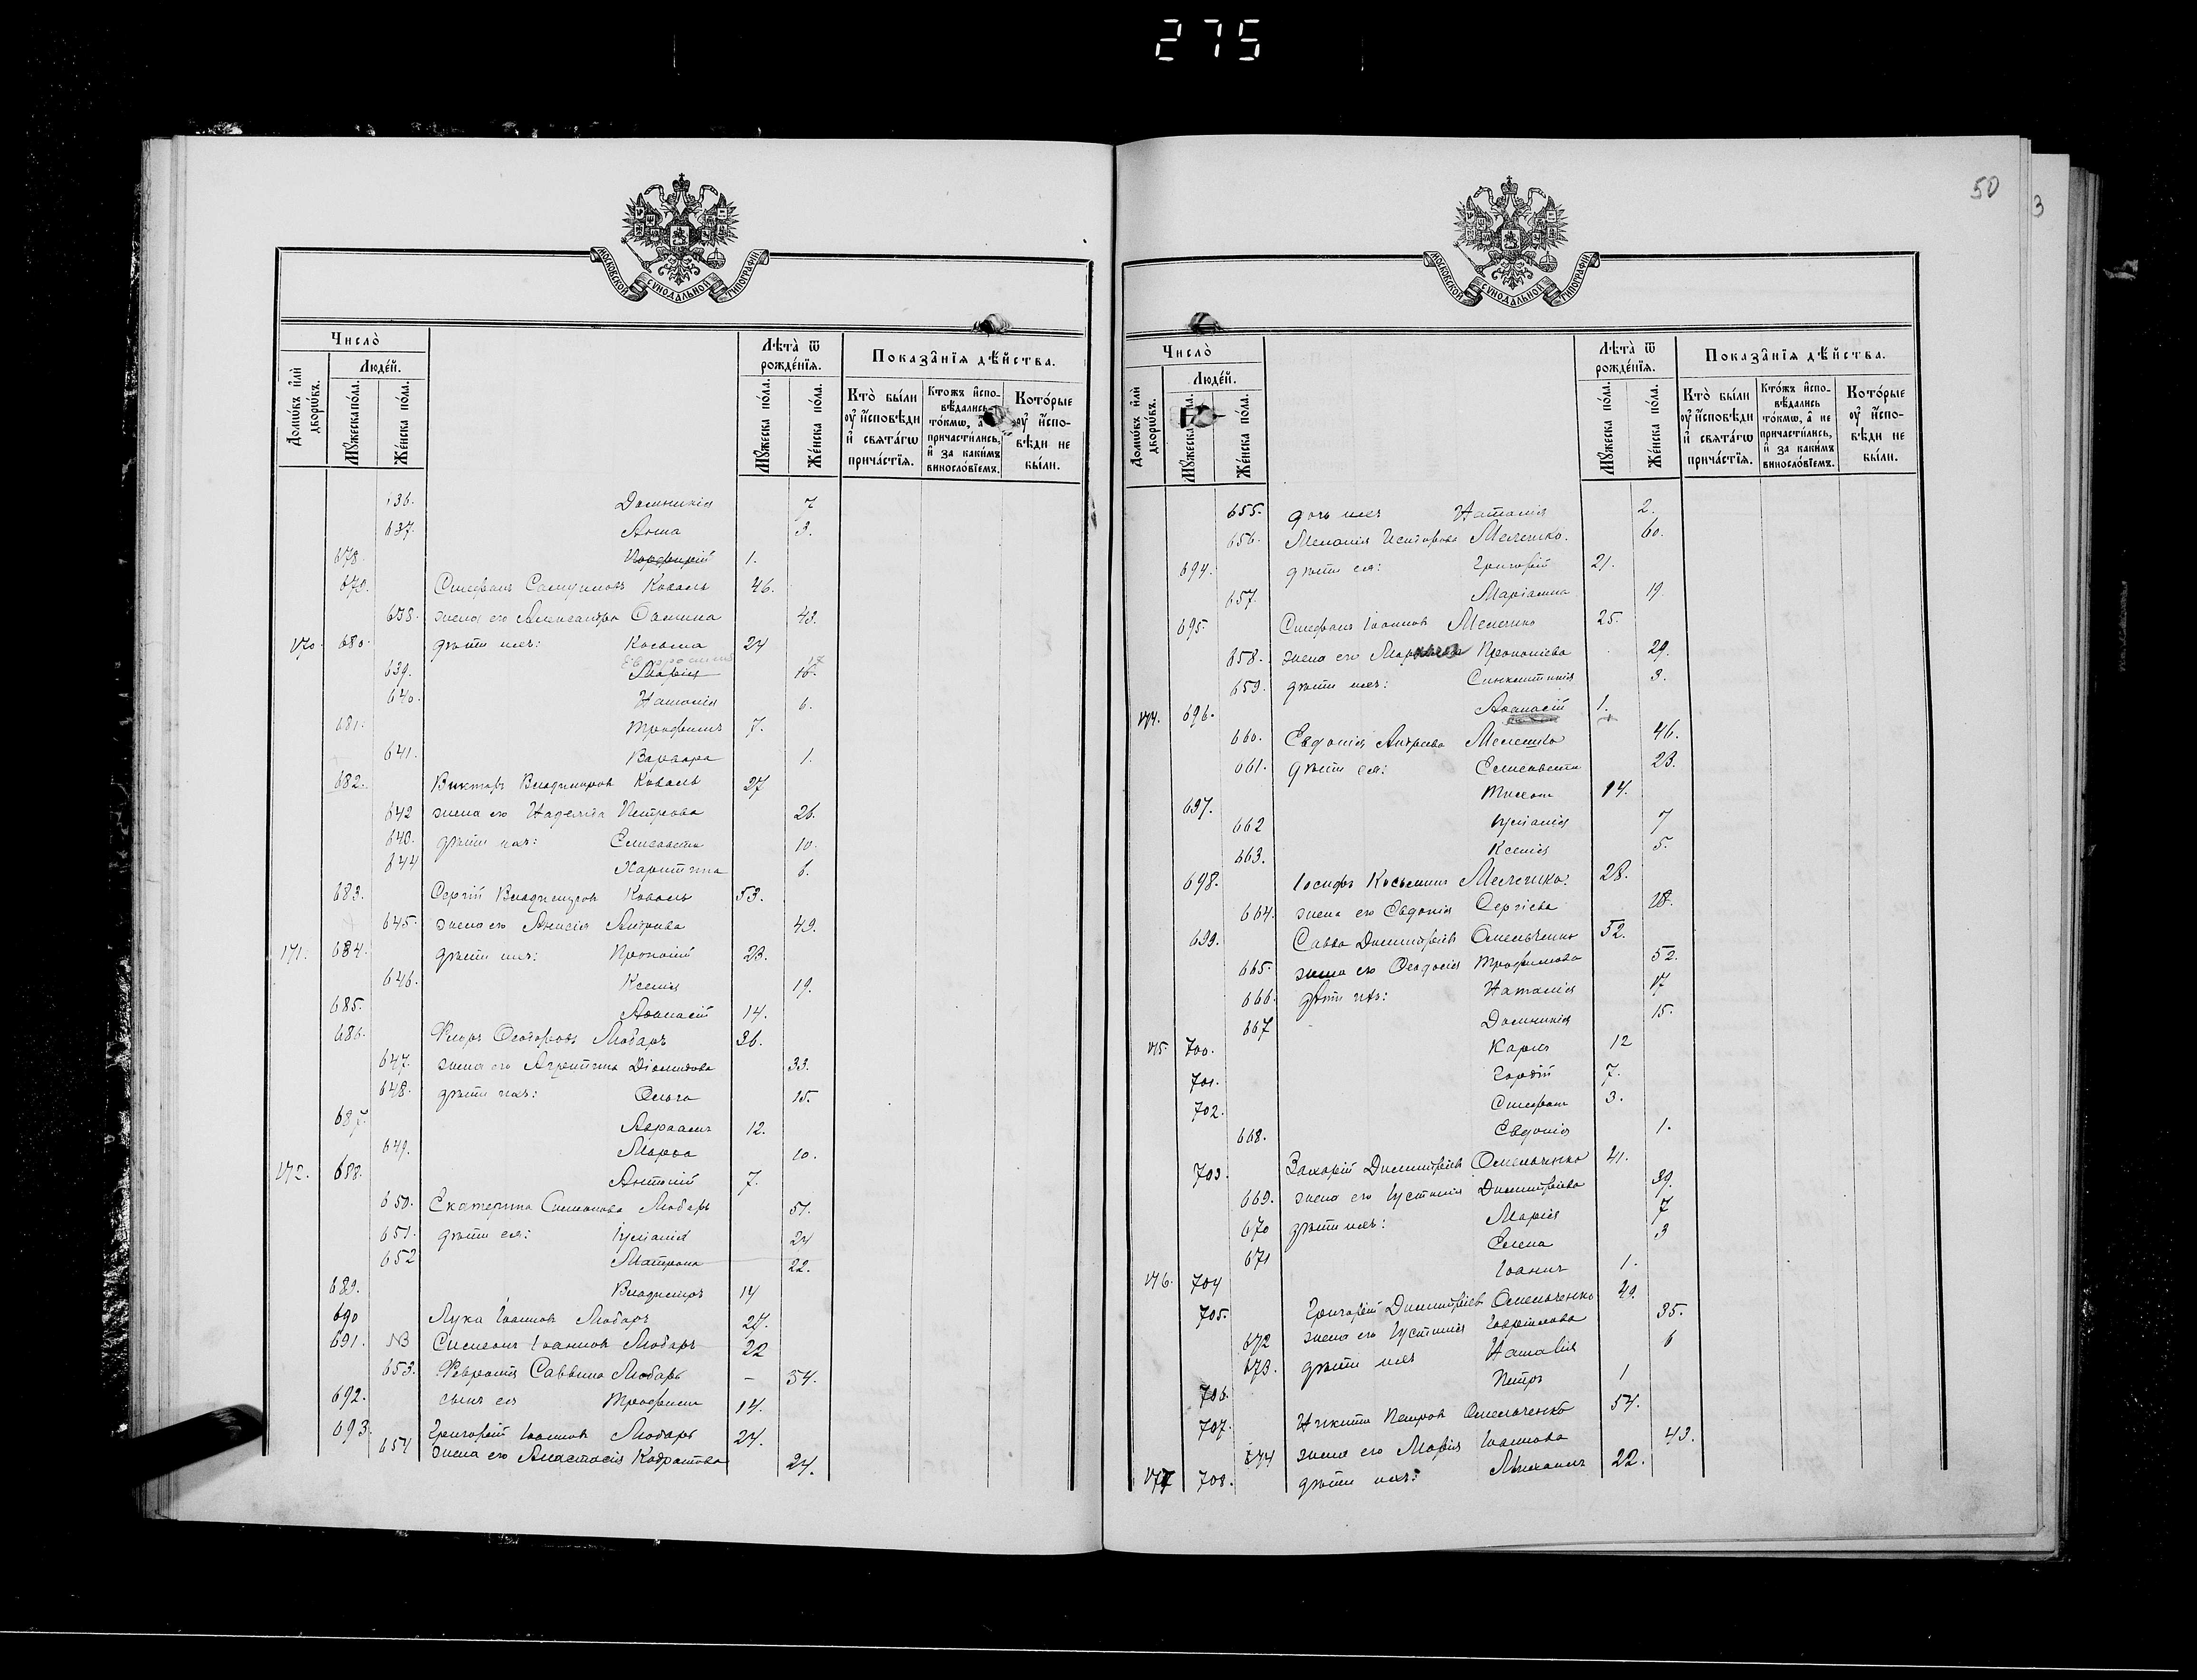 275
МОСКОВСКОЙ СѴНОДАЛЬНОЙ ТИПОГРАФІИ
Число̀
Люде́й.
Домѡ́въ и҆лѝ дворѡ́въ.
Мꙋ́жеска по́ла.
Же́нска по́ла.
Лѣ́та ѿ рожде́нїѧ.
Мꙋ́жеска по́ла.
Же́нска по́ла.
Показа̑нїѧ дѣ́йства.
Кто̀ бы́ли оу҆ и҆сповѣди и҆ свѧта́гѡ прича́стїѧ.
Кто́жъ и҆сповѣдались то́кмѡ, а҆ причасти́лись, и҆ за каки́мъ винословїемъ.
Кото́рые оу҆ и҆сповѣди не бы́ли.
636. Домникія 7
637. Анна 3.
678. Порфирій 1.
679. Стефанъ Коваль 46.
638. жена его Александра Ѳомина 43.
170. 680. дѣти ихъ: Косьма 24
639. Марія Евфросинія 16. 17
640. Наталія 6.
681. Трофимъ 7.
641. Варвара 1.
682. Викторъ Владиміровъ Коваль 27
642 жена его Надежда Петрова 26.
643. дѣти ихъ: Елисавета 10.
644 Харитина 6.
683. Сергій Владиміровъ Коваль 53.
645. жена его Анисія Андреева 49.
171. 684. дѣти ихъ: Прокопій 23.
646. Ксенія 19.
685. Аѳанасій 14.
686. Ѳеодоровъ Любаръ 36.
647. жена его Агриппина Діомидова 33.
648. дѣти ихъ: Ольга 15.
687. Авраамъ 12.
649. Марѳа 10.
172. 688. Антоній 7.
650. Екатерина Симонова Любаръ 51.
651. дѣти ея: Іуліанія 24
652 Матрона 22.
689. Владиміръ 14
690 Лука Іоанновъ Любаръ 27.
691. NB Симеонъ Іоанновъ Любаръ 22
653. Февронія Саввина Любаръ – 54.
692. сынъ ея Трофимъ 14.
693. Григорій Іоанновъ Любаръ 24.
654 жена его Анастасія Кодратова 24.
50
3
МОСКОВСКОЙ СѴНОДАЛЬНОЙ ТИПОГРАФІИ
Число̀
Люде́й.
Домѡ́въ и҆лѝ дворѡ́въ.
Мꙋ́жеска по́ла.
Же́нска по́ла.
Лѣ́та ѿ рожде́нїѧ.
Мꙋ́жеска по́ла.
Же́нска по́ла.
Показа̑нїѧ дѣ́йства.
Кто̀ бы́ли оу҆ и҆сповѣди и҆ свѧта́гѡ прича́стїѧ.
Кто́жъ и҆сповѣдались то́кмѡ, а҆ не причасти́лись, и҆ за каки́мъ винословїемъ.
Кото́рые оу҆ и҆сповѣди не бы́ли.
655. дочь ихъ Наталія 2.
656. Меланія Исидорова Мелешко. 60.
694. дѣти ея: Григорій 21.
657. Маріанна 19.
695. Стефанъ Іоанновъ Мелешко 25.
658. жена его Прокопіева 29.
659. дѣти ихъ: Синклитикія 3.
174. 696. Аѳанасій 1.
660. Евдокія Андреева Мелешко 46.
661. дѣти ея: Елисавета 23.
697. Тихонъ 14.
662 Іуліанія 7
663. Ксенія 5.
698. Іосифъ Косьминъ Мелешко. 28.
664. жена его Евдокія Сергіева 28.
699. Савва Димитріевъ Омельченко 52.
665. жена его Ѳеодосія Трофимова 52.
666. дѣти ихъ: Наталія 17
667 Домникія 15.
175. 700. Карпъ 12
701. Гордій 7.
702. Стефанъ 3.
668. Евдокія 1.
703. Захарій Димитріевъ Омельченко 41.
669. жена его Іустинія Димитріева 39.
670 дѣти ихъ: Марія 7
671 Елена 3
176. 704 Іоаннъ 1.
705. Григорій Димитріевъ Омельченко 49.
672 жена его Іустинія Гавріилова 35.
673. дѣти ихъ Наталія 6
706. Петръ 1
707. Никита Петровъ Омельченко 54.
674 жена его Марія Іоаннова 43.
177 708. дѣти ихъ: Михаилъ 22.